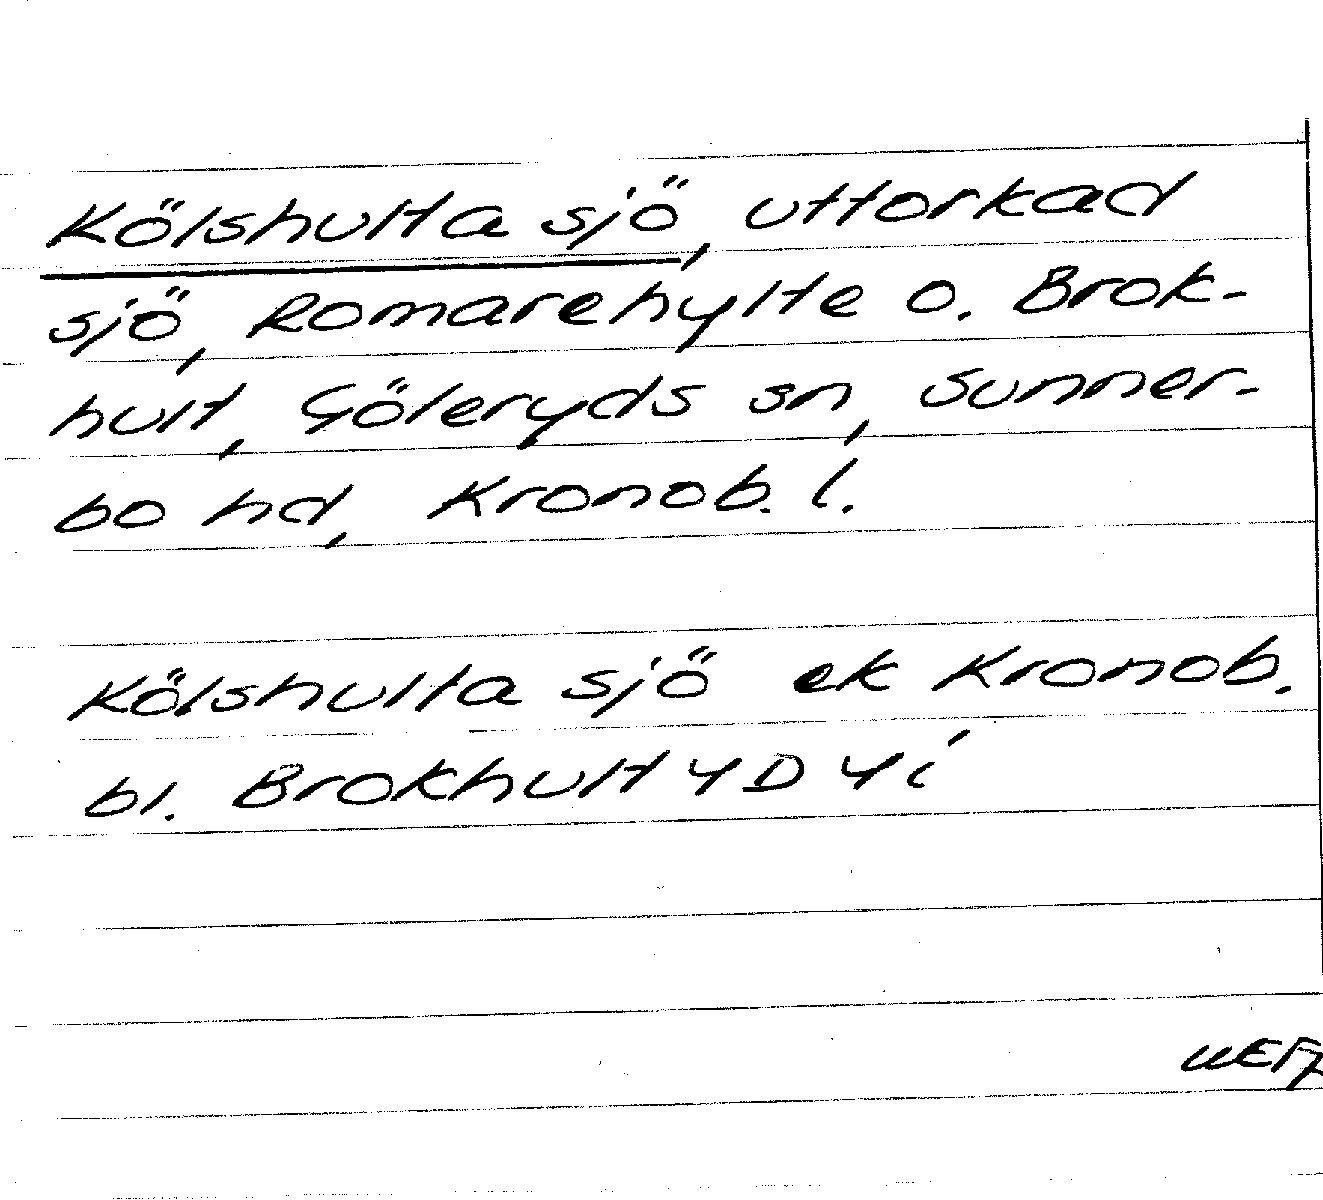 Kölshulta sjö, uttorkad
sjö, Romarehylte o. Brok-
hult, Göteryds sn, Sunner-
bo hd, Kronob. l.
Kölshulta sjö ek Kronob.
bl. Brokhult 4D 4i